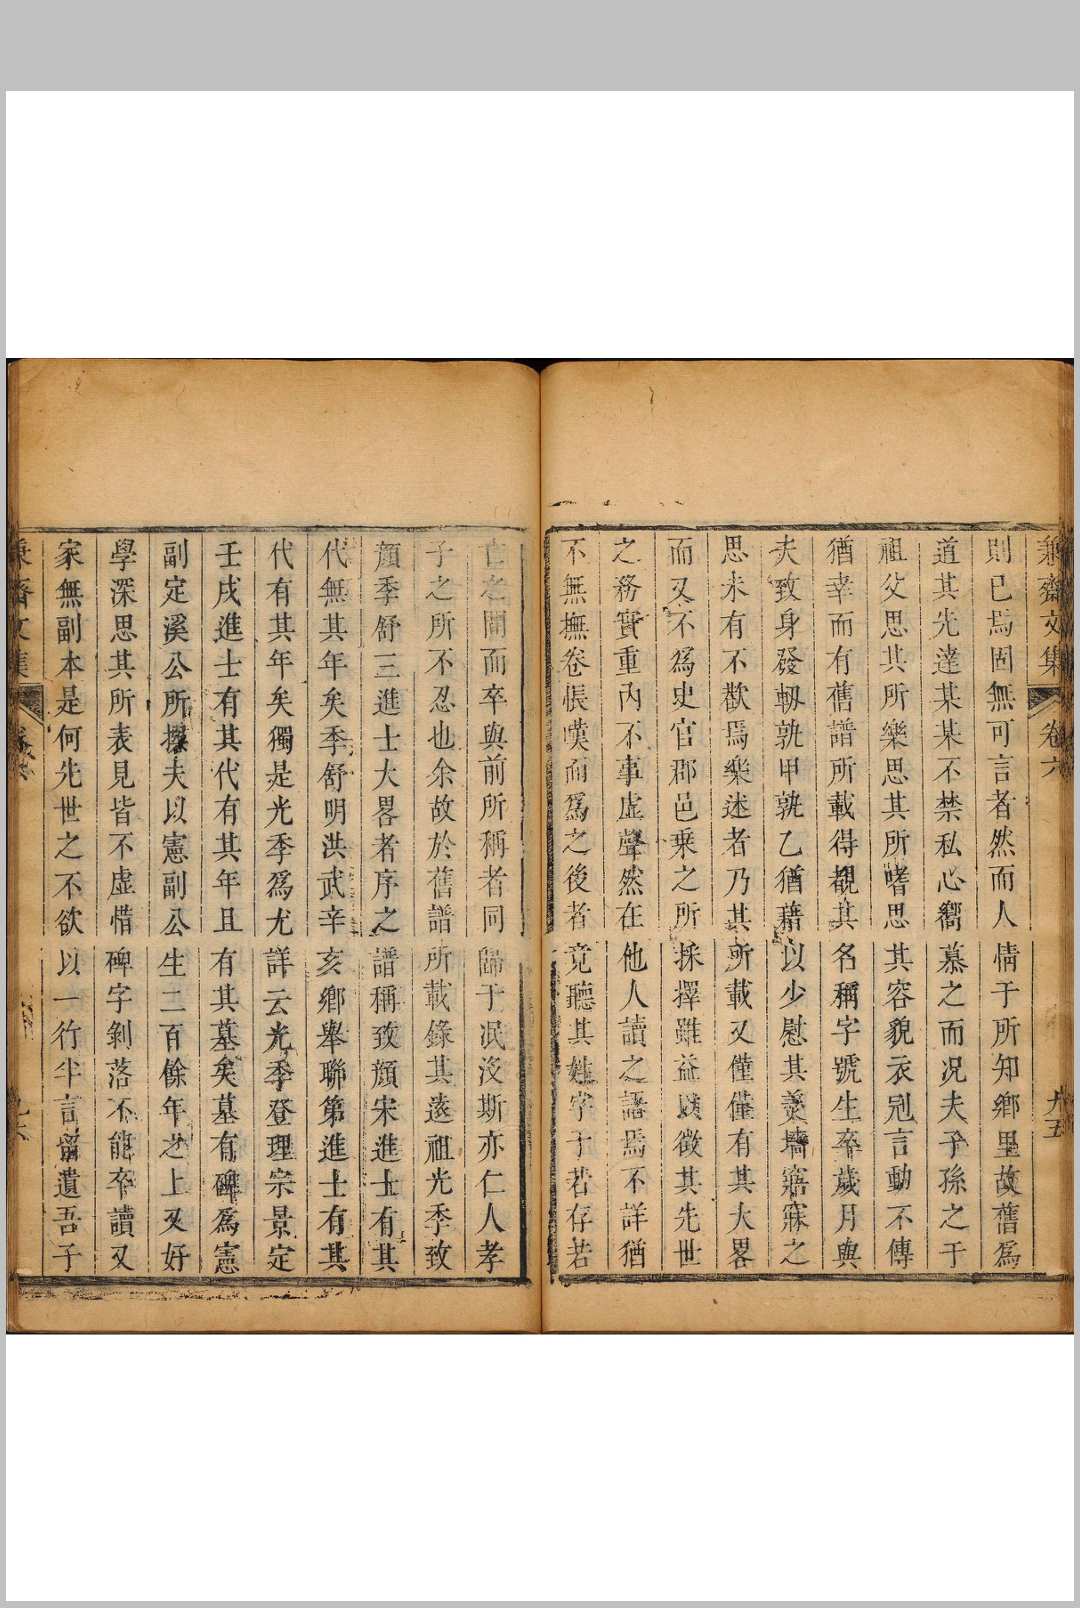 兼濟文集 卷六 九五
則已焉固無可言者然而人情于所知鄉里故舊爲
道其先達某某不禁私心嚮慕之而况夫子孫之于
祖父思其所樂思其所嗜思其容貌衣冠言動不傳
猶幸而有舊譜所載得覩其名稱字號生卒歲月與
夫致身發軔孰甲孰乙猶藉以少慰其羹墻寤寐之
思未有不歡焉樂述者乃其所載又僅僅有其大畧
而又不爲史官郡邑乗之所採擇雖益以徵其先世
之務實重内不事虚聲然在他人讀之語焉不詳猶
不無撫卷悵嘆而爲之後者竟聽其姓字于若存若
亡之間而卒與前所稱者同歸于泯没斯亦仁人孝
子之所不忍也余故於舊譜所載錄其遠祖光季致
顔季舒三進士大畧者序之譜稱致顔宋進士有其
代無其年矣季舒明洪武辛亥鄉舉聯第進士有其
代有其年矣獨是光季爲尤詳云光季登理宗景定
壬戌進士有其代有其年且有其墓矣墓有碑爲憲
副定溪公所撰夫以憲副公生二百餘年之上又好
學深思其所表見皆不虚惜碑字剝落不能卒讀又
家無副本是何先世之不欲以一行半言留遺吾子
兼濟文集